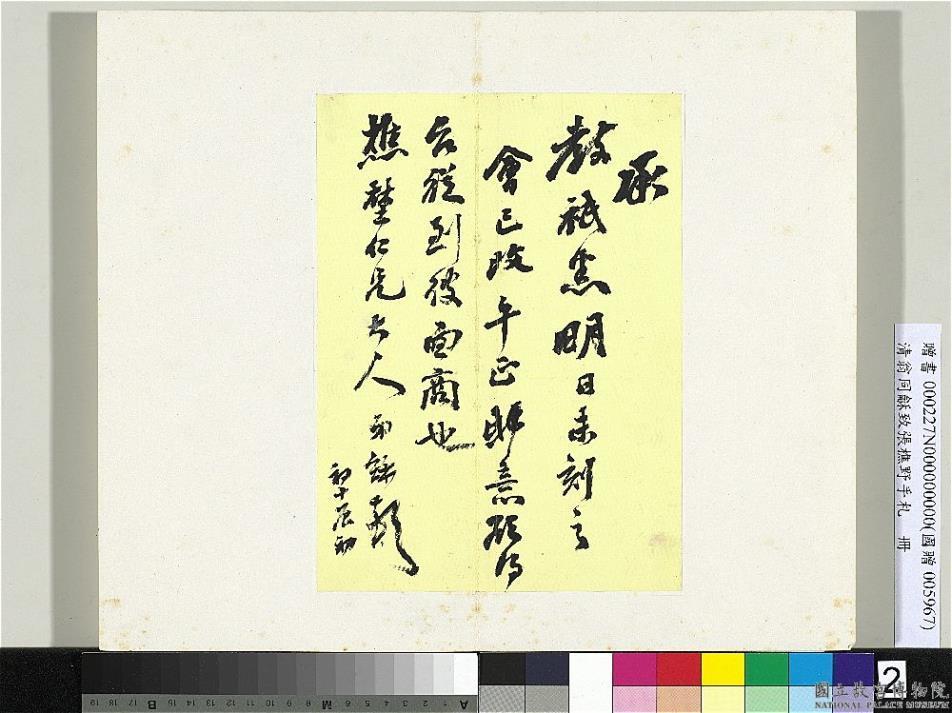 承
教祇悉明日未刻之
會已改午正鄙意須得
台從到彼面商也
樵埜仁兄大人 弟龢頓
初十辰初
贈書 000227N000000000(國贈 005967)
清翁同龢致張樵野手札 冊
2
國立故宮博物院
NATIONAL PALACE MUSEUM
A 1 2 3 4 5 6 M 8 9 10 11 12 13 14 15 B 17 18 19